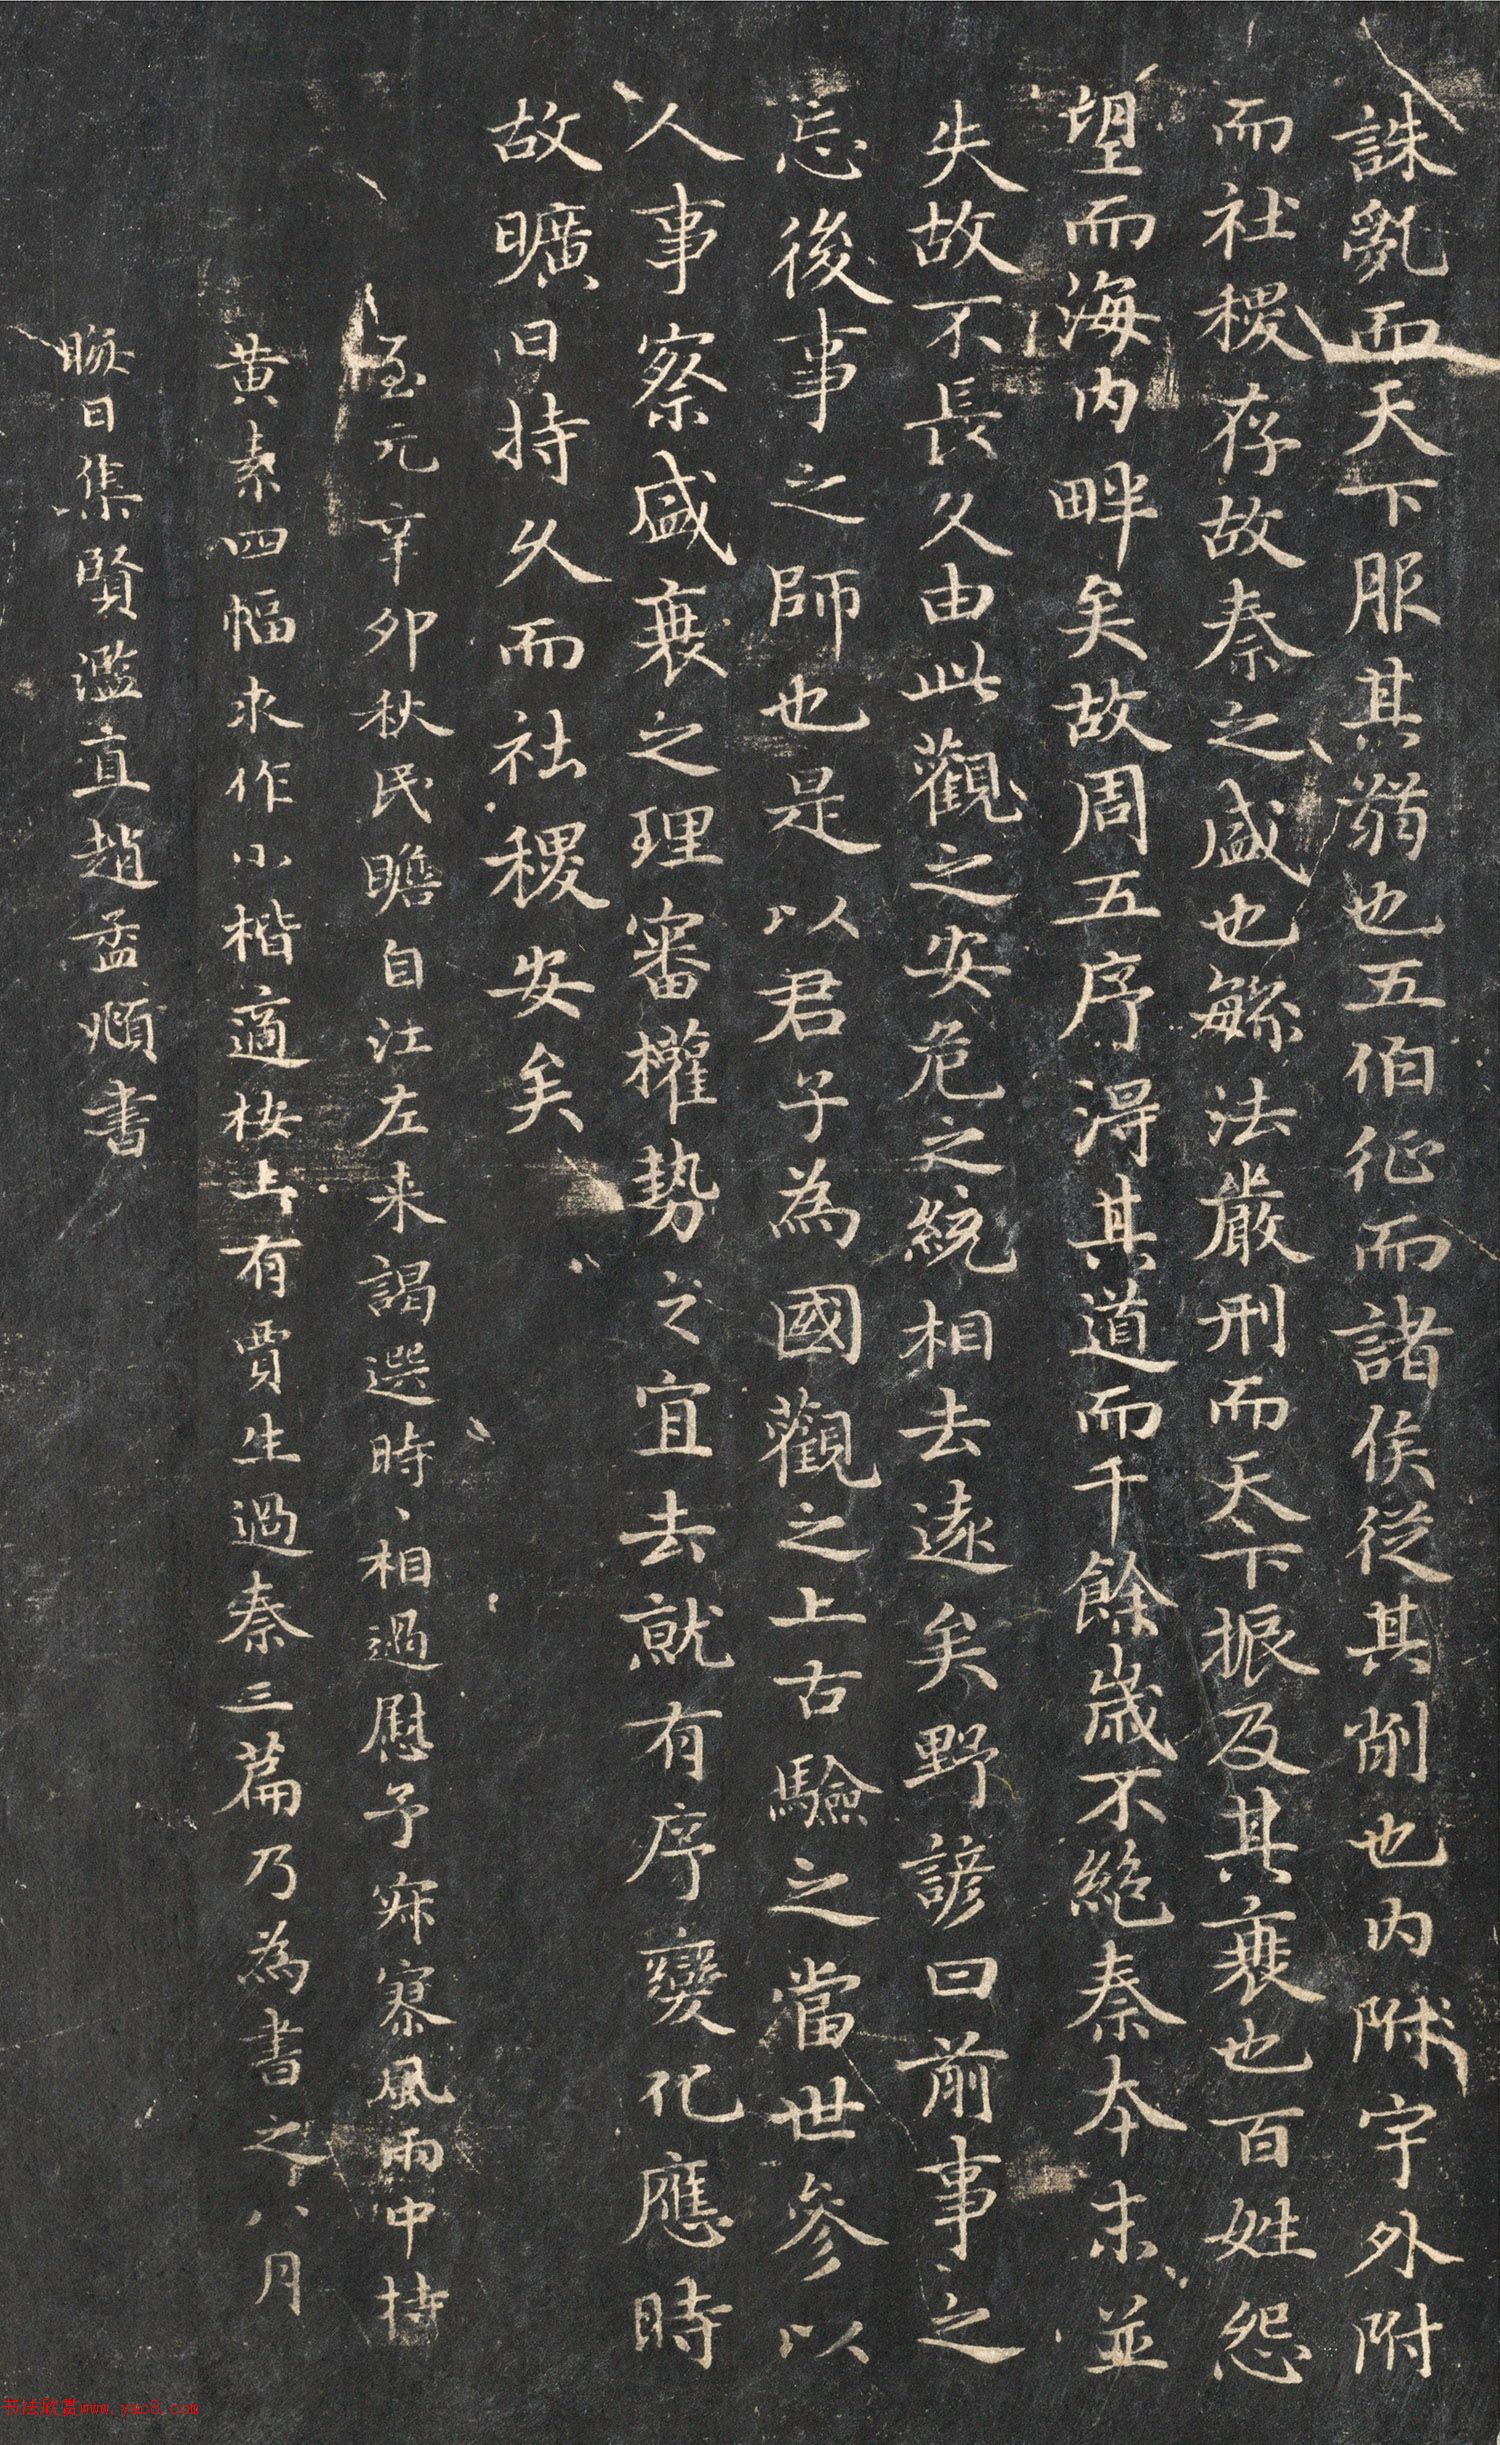 誅亂而天下服其弱也五伯征而諸侯從其削也內附字外附
而社稷存故秦之盛也繁法嚴刑而天下振及其衰也百姓怨
望而海內畔矣故周五序得其道而千餘歲不絕秦本末並
失故不長久由此觀之安危之統相去遠矣野諺曰前事之
忘後事之師也是以君子為國觀之上古驗之當世參以
人事察盛衰之理審權勢之宜去就有序變化應時
故曠日持久而社稷安矣
至元辛卯秋民瞻自江左來謁選時、相過慰予寂寥風雨中持
黃素四幅求作小楷適按上有賈生過秦三篇乃為書之八月
日集賢濫直趙孟頫書
书法欣赏www.yac8.com